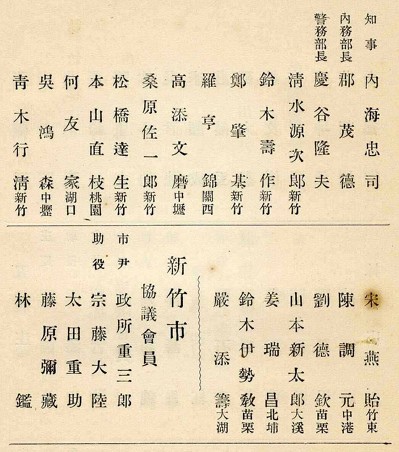 知事 內海忠司
內務部長 郡茂德
警務部長 慶谷隆夫
淸水源次郞 新竹
鈴木壽作 新竹
鄭肇基 新竹
羅亨錦 關西
高添文磨 中壢
桑原佐一郞 新竹
松橋達生 新竹
本山直枝 桃園
何友家 湖口
吳鴻森 中壢
靑木行淸 新竹
宋燕貽 竹東
陳調元 中港
劉德欽 苗栗
山本新太郞 大溪
姜瑞昌 北埔
鈴木伊勢敎 苗栗
嚴添籌 大湖
新竹市
協議會員
市尹 政所重三郞
助役 宗藤大陸
太田重助
藤原彌藏
林鑑